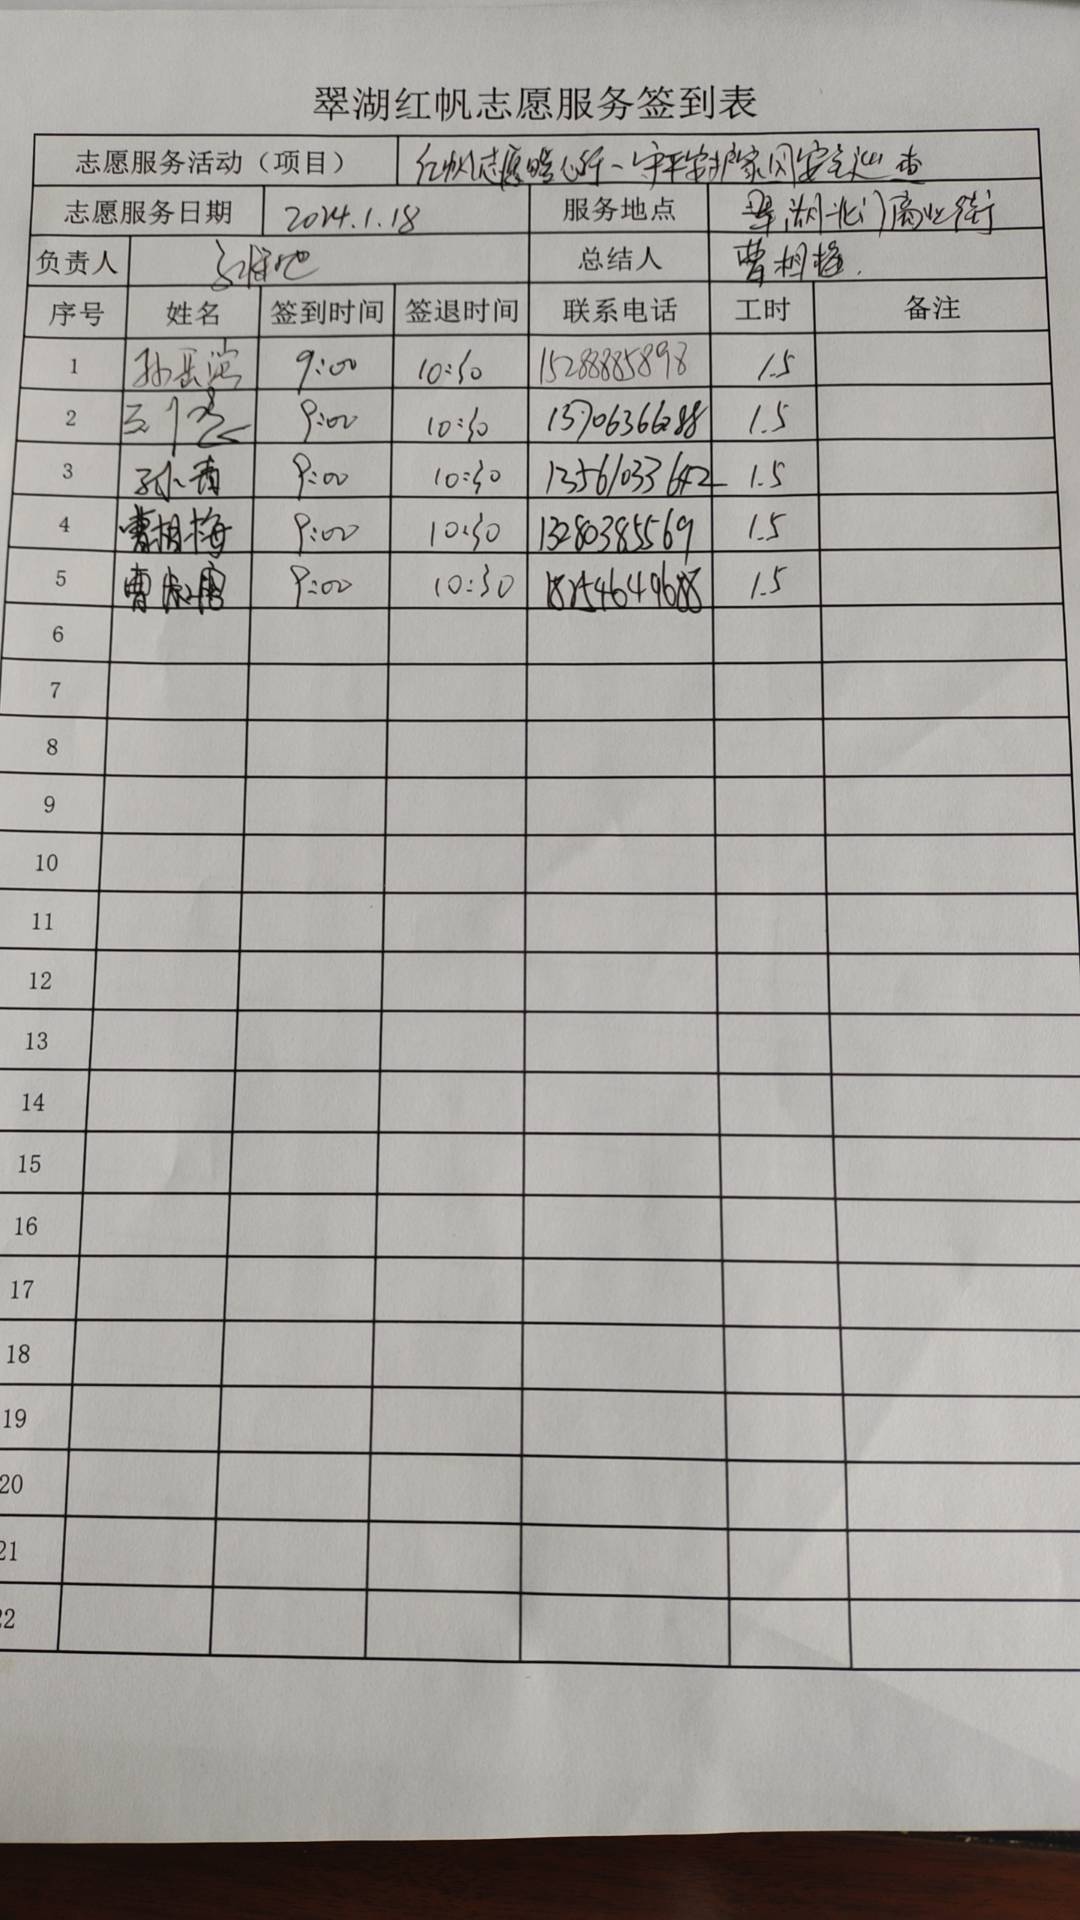 翠湖红帆志愿服务签到表
志愿服务活动（项目） 红帆志愿暖心行一守平安护家园安全巡查
志愿服务日期 2024.1.18 服务地点 翠湖北门商业街
负责人 总结人 曹相梅.
序号 姓名 签到时间 签退时间 联系电话 工时 备注
1 孙岳滨 9:00 10:30 15288885898 1.5
2 9:00 10:30 13706366288 1.5
3 孙青 9:00 10:30 13561033642 1.5
4 曹相梅 9:00 10:30 13280385569 1.5
5 曹 9:00 10:30 18254649688 1.5
6
7
8
9
10
11
12
13
14
15
16
17
18
19
20
21
22